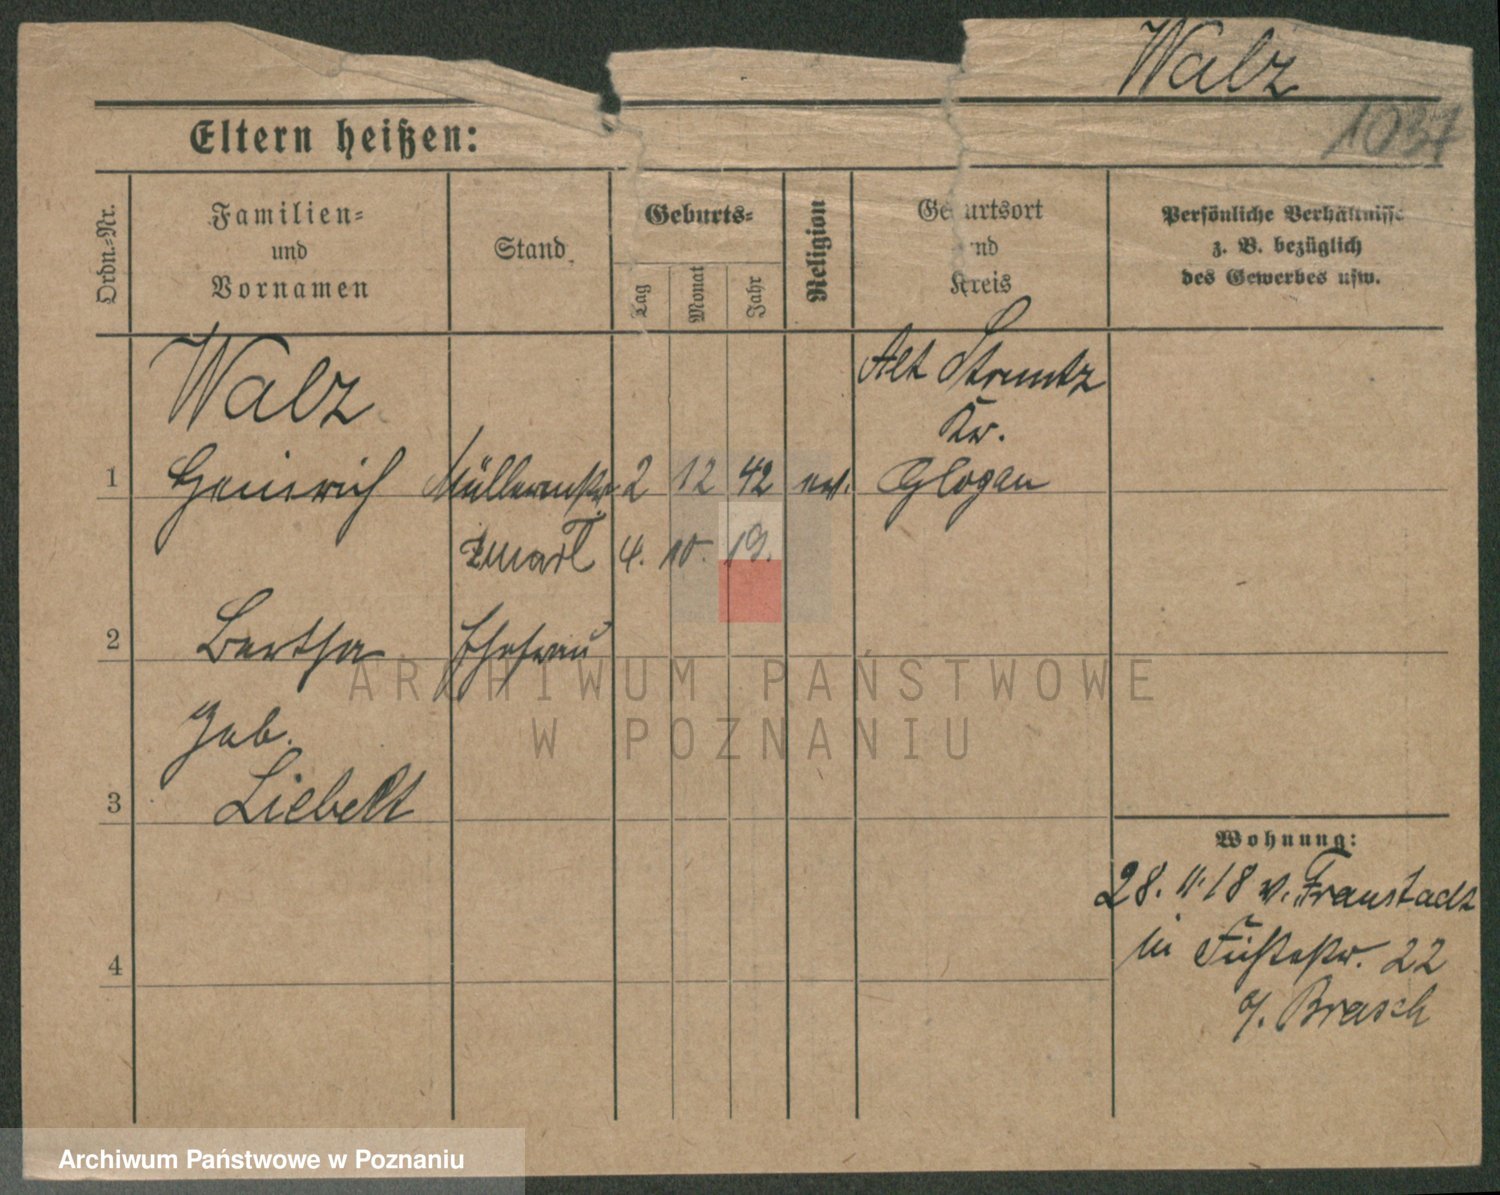 Walz
1037
Eltern heißen:
Ordn.=Nr.
Familien=
und
Vornamen
Stand
Geburts=
Tag
Monat
Jahr
Religion
Geburtsort
und
Kreis
Persönliche Verhältnisse
z. B. bezüglich
des Gewerbes usw.
Walz
Alt Strunz
Kr.
1 Heinrich 2 12 42 ev. Glogau
4. 10. 19.
2 Bertha Ehefrau
geb.
3 Liebelt
4
Wohnung:
28. 11. 18 v. Fraustadt
in 22
b/. Brasch
ARCHIWUM PAŃSTWOWE
W POZNANIU
Archiwum Państwowe w Poznaniu